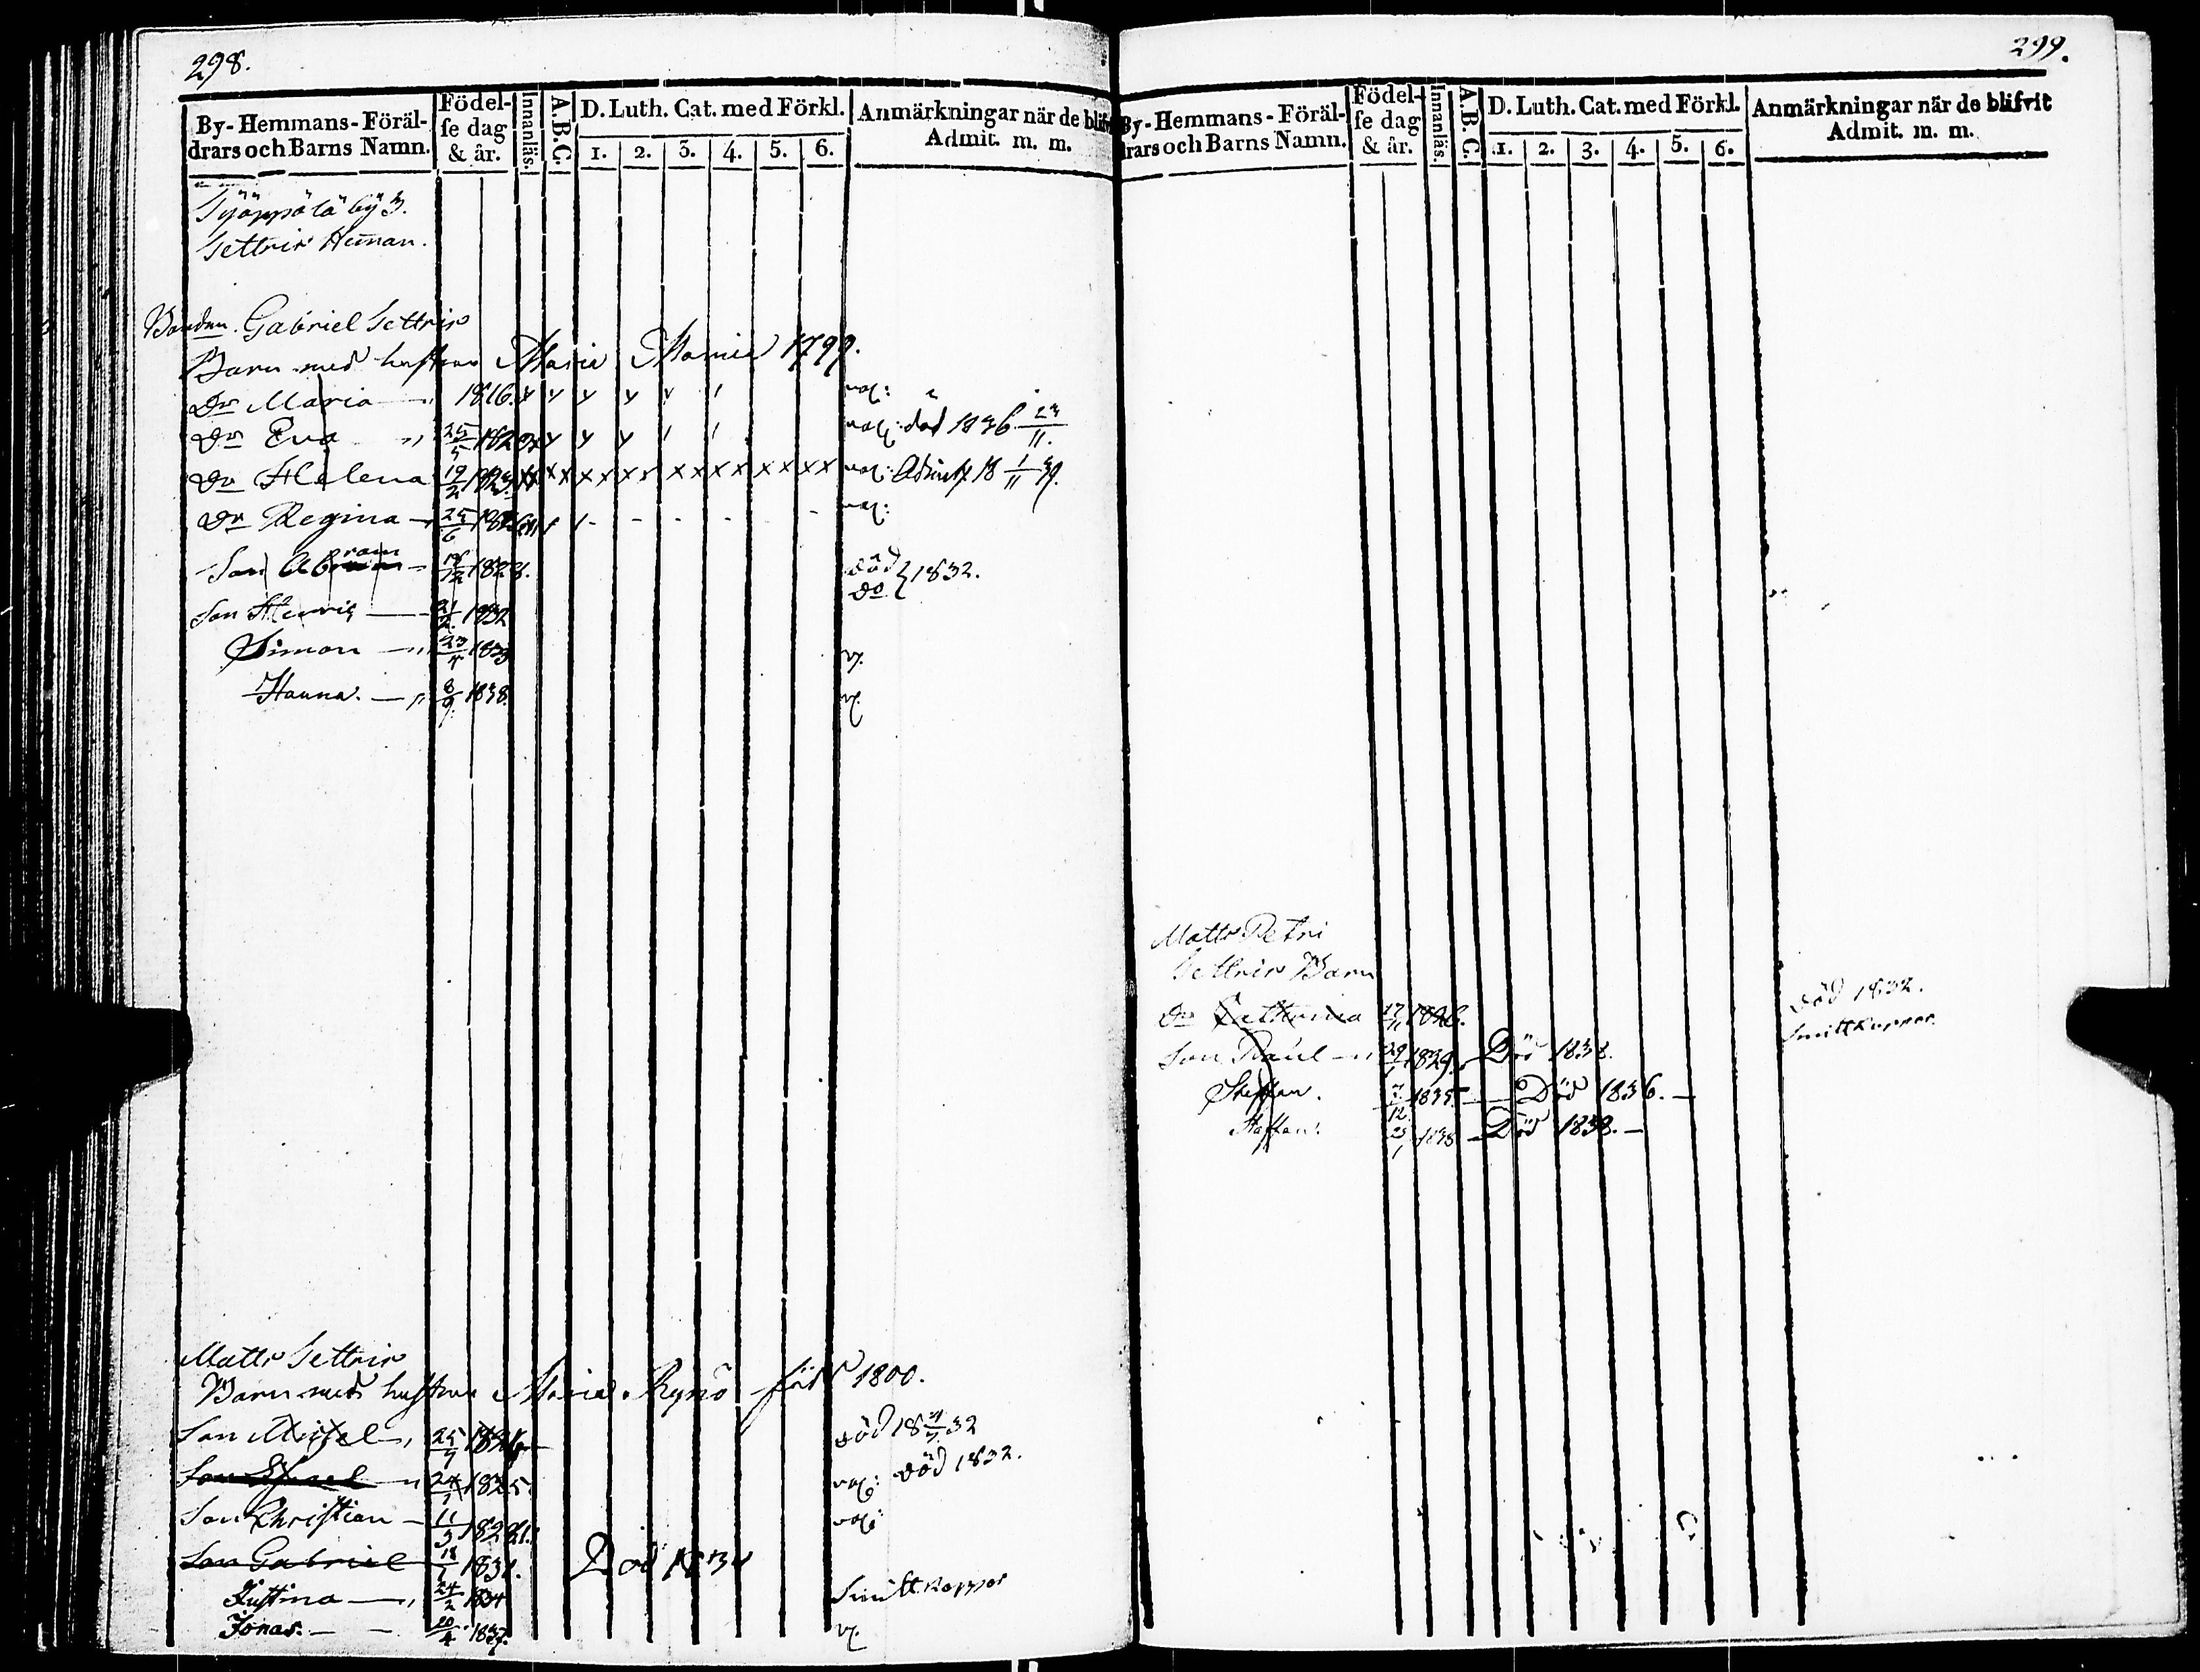 298.
By-Hemmans-Föräl-
drars och Barns Namn.
Födel-
se dag
& år.
Innanläs.
A.B.C.
D. Luth. Cat. med Förkl.
1. 2. 3. 4. 5. 6.
Anmärkningar när de blifv
Admit. m. m.
by 3.
Bonden Gabriel
Barn med hustrun Maria 1799.
Dr Maria 1816. vac:
Dr Eva 25/5 182 vac: död 1836 23/11.
Dr Helena 19/2 1823 vac: Admitt 18 1/11 39.
Dr Regina 25/6 1826 vac:
Son Abram 1828. död
Son Henric 21/2 1832 do } 1832.
Simon 23/4 1833 v.
Hanna. 8/9. 1838. v.
Matts
Barn med hustrun Maria född 1800.
Son Michel 25/9 182 död 18 32
Son 1825. vac: död 1832.
Son Christian 11/3 182 vac:
Son Gabriel 18/1 1831. Död 183
Justina 24/2 1834 Smittkoppor
Jonas. 1837. v.
299.
By-Hemmans-Föräl-
drars och Barns Namn.
Födel-
se dag
& år.
Innanläs.
A.B.C.
D. Luth. Cat. med Förkl.
1. 2. 3. 4. 5. 6.
Anmärkningar när de blifvit
Admit. m. m.
Matts Petri
Barn
Dr Catharina 1826. död 1832.
Smittkoppor.
Son Paul 29/1 1829. Död 183
Steffan. 7/12 1835. Död 1836.
Staffan. 1838 Död 1838.